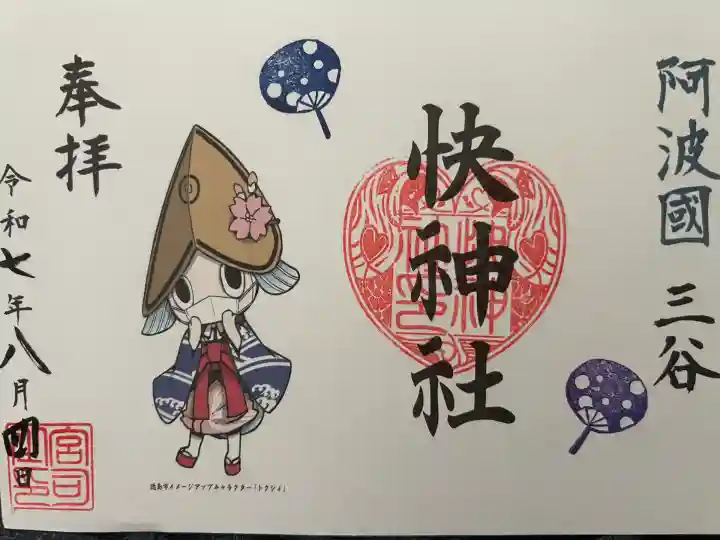 阿波國 三谷
快神社
奉拝
令和七年八月四日
徳島市イメージアップキャラクター「トクシイ」
宮司